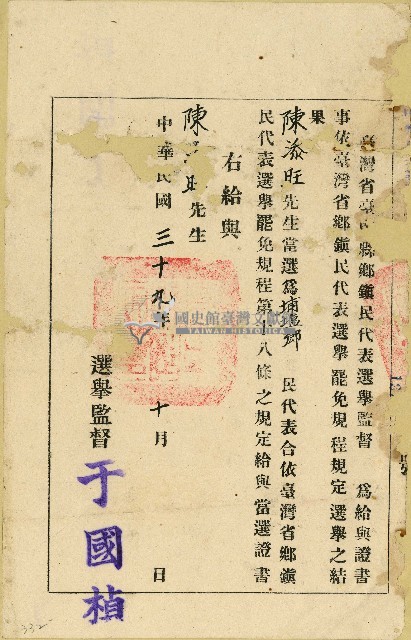 臺灣省臺中縣鄉鎮民代表選舉監督　為給與證書
事依臺灣省鄉鎮民代表選舉罷免規程規定選舉之結
果陳添旺先生當選為埔鹽鄉　民代表合依臺灣省鄉鎮
民代表選舉罷免規程第　八條之規定給與當選證書
右給與
陳　旺先生
中華民國三十九年　十月　日
選舉監督于國楨
國史館臺灣文獻館
TAIWAN HISTORICA
332